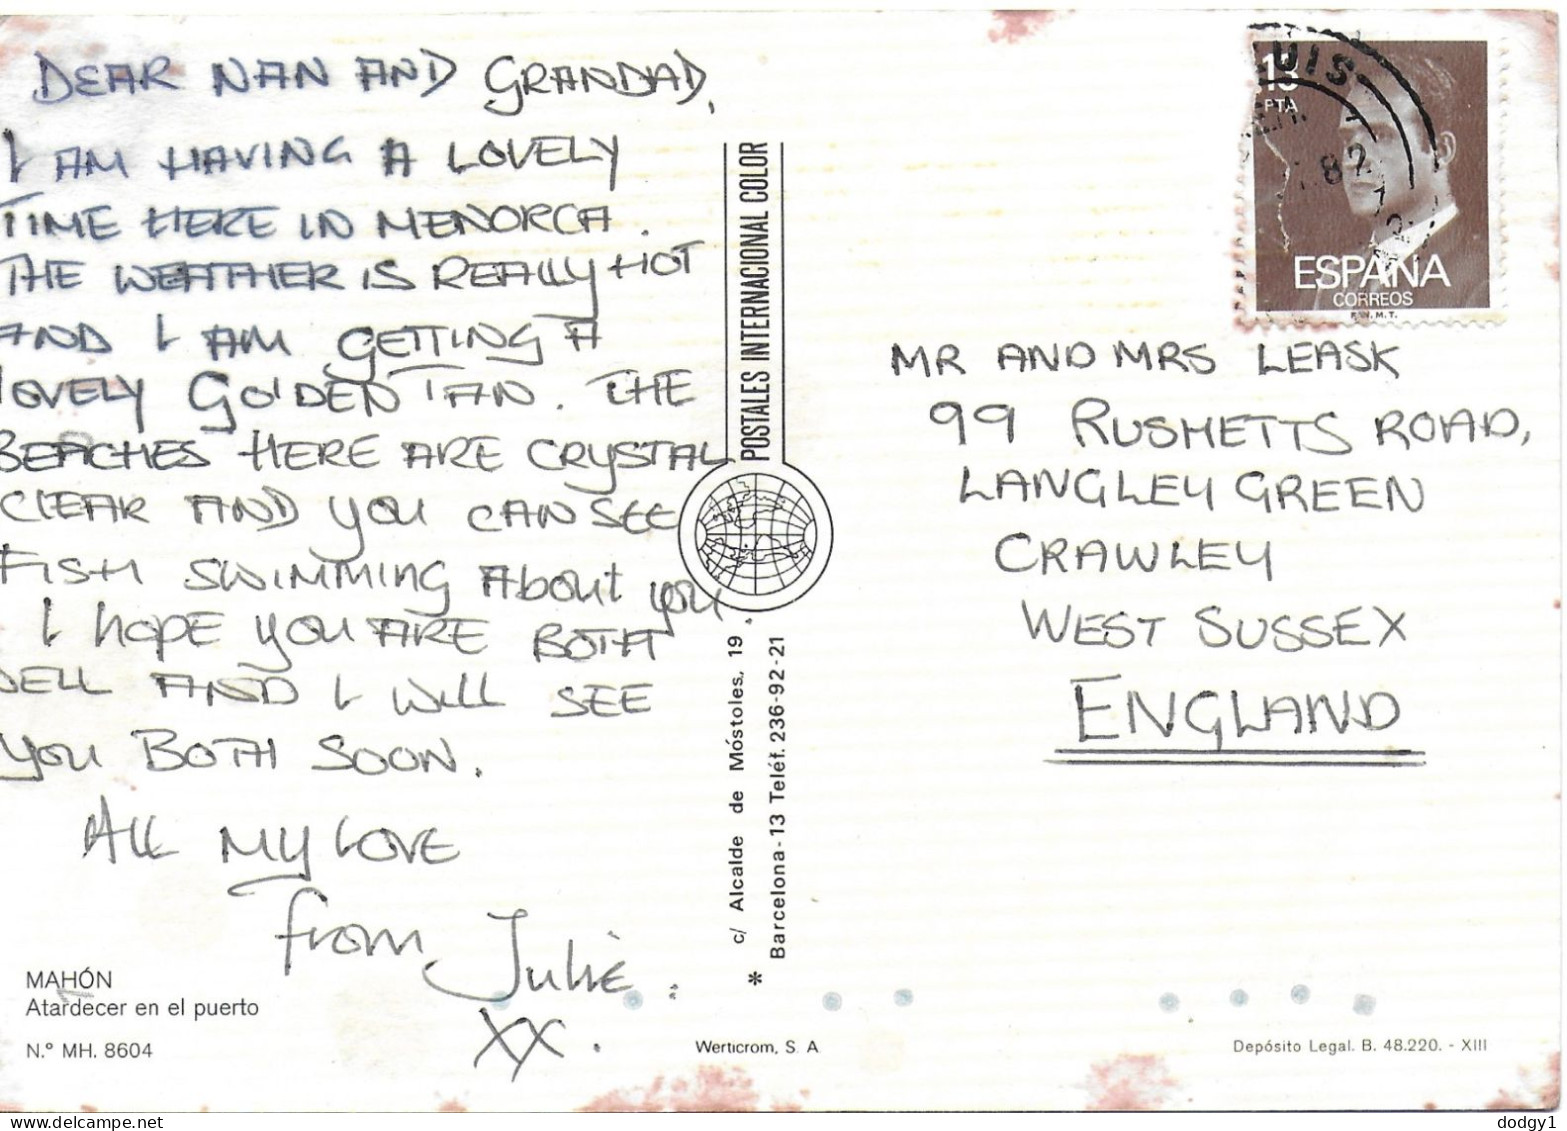 DEAR NAN AND GRANDAD,
I AM HAVING A LOVELY
TIME HERE IN MENORCA.
THE WEATHER IS REALLY HOT
AND I AM GETTING A
LOVELY GOLDEN TAN. THE
BEACHES HERE ARE CRYSTAL
CLEAR AND YOU CAN SEE
FISH SWIMMING ABOUT YOU.
I HOPE YOU ARE BOTH
WELL AND I WILL SEE
YOU BOTH SOON.
ALL MY LOVE
from Julie.
XX.
MAHÓN
Atardecer en el puerto
N.º MH. 8604
POSTALES INTERNACIONAL COLOR
* c/ Alcalde de Móstoles, 19
Barcelona-13 Teléf. 236-92-21
Werticrom, S. A
UIS
82
PTA
ESPAÑA
CORREOS
F.N.M.T.
MR AND MRS LEASK
99 RUSHETTS ROAD,
LANGLEY GREEN
CRAWLEY
WEST SUSSEX
ENGLAND
Depósito Legal. B. 48.220. - XIII
dodgy1